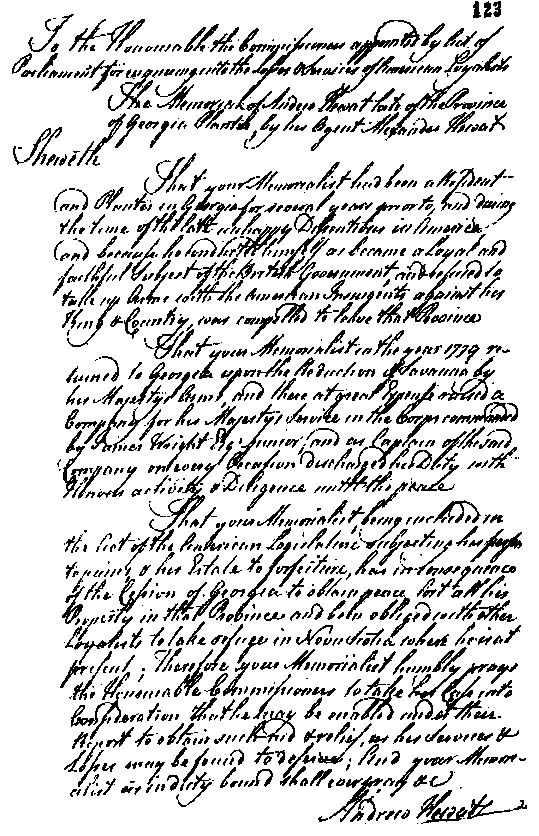 123
To the Honourable the Commissioners appointed by Act of
Parliament for enquiring into the Losses & Services of American Loyalists
The Memorial of Andrew Hewat late of the Province
of Georgia Planter, by his Agent Alexander Hewat
Sheweth
That your Memorialist had been a Resident
and Planter in Georgia for several years prior to, and during
the time of the late unhappy Dissentions in America
and because he conducted himself as became a Loyal and
faithful Subject of the British Government, and refused to
take up Arms with the American Insurgents against his
King & Country, was compelled to leave that Province
That your Memorialist in the year 1779 re-
turned to Georgia upon the Reduction of Savanna by
his Majesty's Arms, and there at great Expense raised a
Company for his Majesty's Service in the Corps commanded
by James Wright Esqr. Junior, and as Captain of the said
Company on every Occasion discharged his Duty with
Honour activity & Diligence until the peace
That your Memorialist, being included in
the list of the American Legislature subjecting his person
to pains & his Estate to forfeiture, has in consequence
of the Cession of Georgia to obtain peace, lost all his
Property in that Province and been obliged with other
Loyalists to take refuge in Nova Scotia where he is at
present; Therefore your Memorialist humbly prays
the Honourable Commissioners to take his Case into
Consideration that he may be enabled under their
Report to obtain such Aid & relief, as his Services &
Losses may be found to deserve; And your Memor-
ialist as in duty bound shall ever pray &c
Andrew Hewat